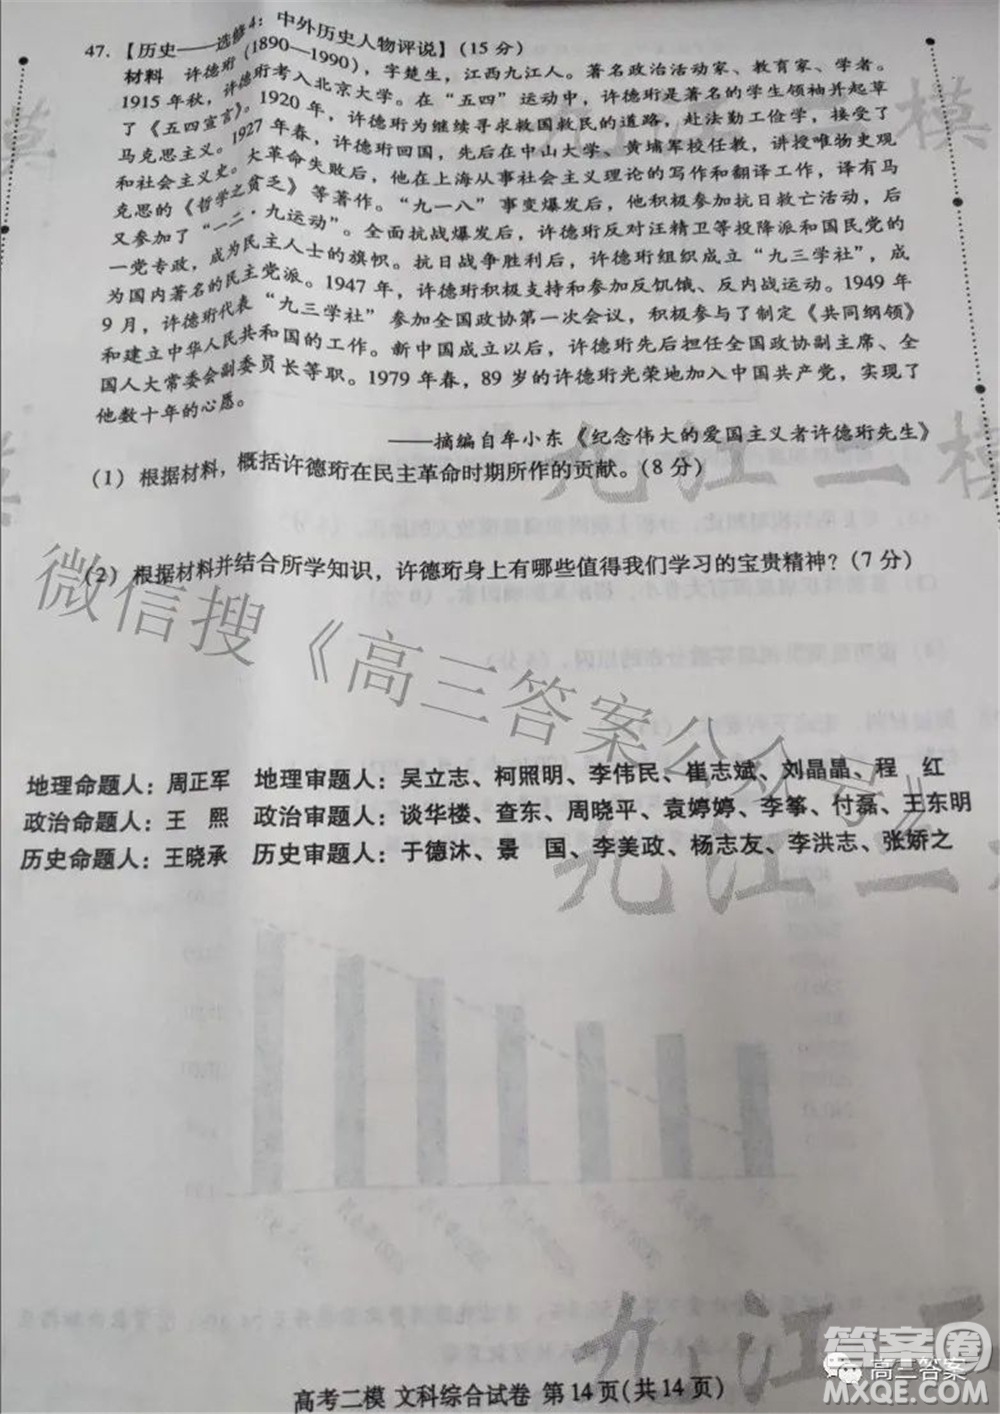 47. 【历史——选修4：中外历史人物评说】(15 分)
材料 许德珩 (1890—1990)，字楚生，江西九江人。著名政治活动家、教育家、学者。
1915 年秋，许德珩考入北京大学。在“五四”运动中，许德珩是著名的学生领袖并起草
了《五四宣言》。1920 年，许德珩为继续寻求救国救民的道路，赴法勤工俭学，接受了
马克思主义。1927 年春，许德珩回国，先后在中山大学、黄埔军校任教，讲授唯物史观
和社会主义史。大革命失败后，他在上海从事社会主义理论的写作和翻译工作，译有马
克思的《哲学之贫乏》等著作。“九一八”事变爆发后，他积极参加抗日救亡活动，后
又参加了“一二·九运动”。全面抗战爆发后，许德珩反对汪精卫等投降派和国民党的
一党专政，成为民主人士的旗帜。抗日战争胜利后，许德珩组织成立“九三学社”，成
为国内著名的民主党派。1947 年，许德珩积极支持和参加反饥饿、反内战运动。1949 年
9 月，许德珩代表“九三学社”参加全国政协第一次会议，积极参与了制定《共同纲领》
和建立中华人民共和国的工作。新中国成立以后，许德珩先后担任全国政协副主席、全
国人大常委会副委员长等职。1979 年春，89 岁的许德珩光荣地加入中国共产党，实现了
他数十年的心愿。
——摘编自牟小东《纪念伟大的爱国主义者许德珩先生》
(1) 根据材料，概括许德珩在民主革命时期所作的贡献。(8 分)
(2) 根据材料并结合所学知识，许德珩身上有哪些值得我们学习的宝贵精神？(7 分)
微信搜《高三答案公众号》
地理命题人：周正军 地理审题人：吴立志、柯照明、李伟民、崔志斌、刘晶晶、程 红
政治命题人：王 熙 政治审题人：谈华楼、查东、周晓平、袁婷婷、李筝、付磊、王东明
历史命题人：王晓承 历史审题人：于德沐、景 国、李美政、杨志友、李洪志、张娇之
九江二模
九江二
九江二
高考二模 文科综合试卷 第 14 页(共 14 页)
高三答案
答案圈
MXQE.COM